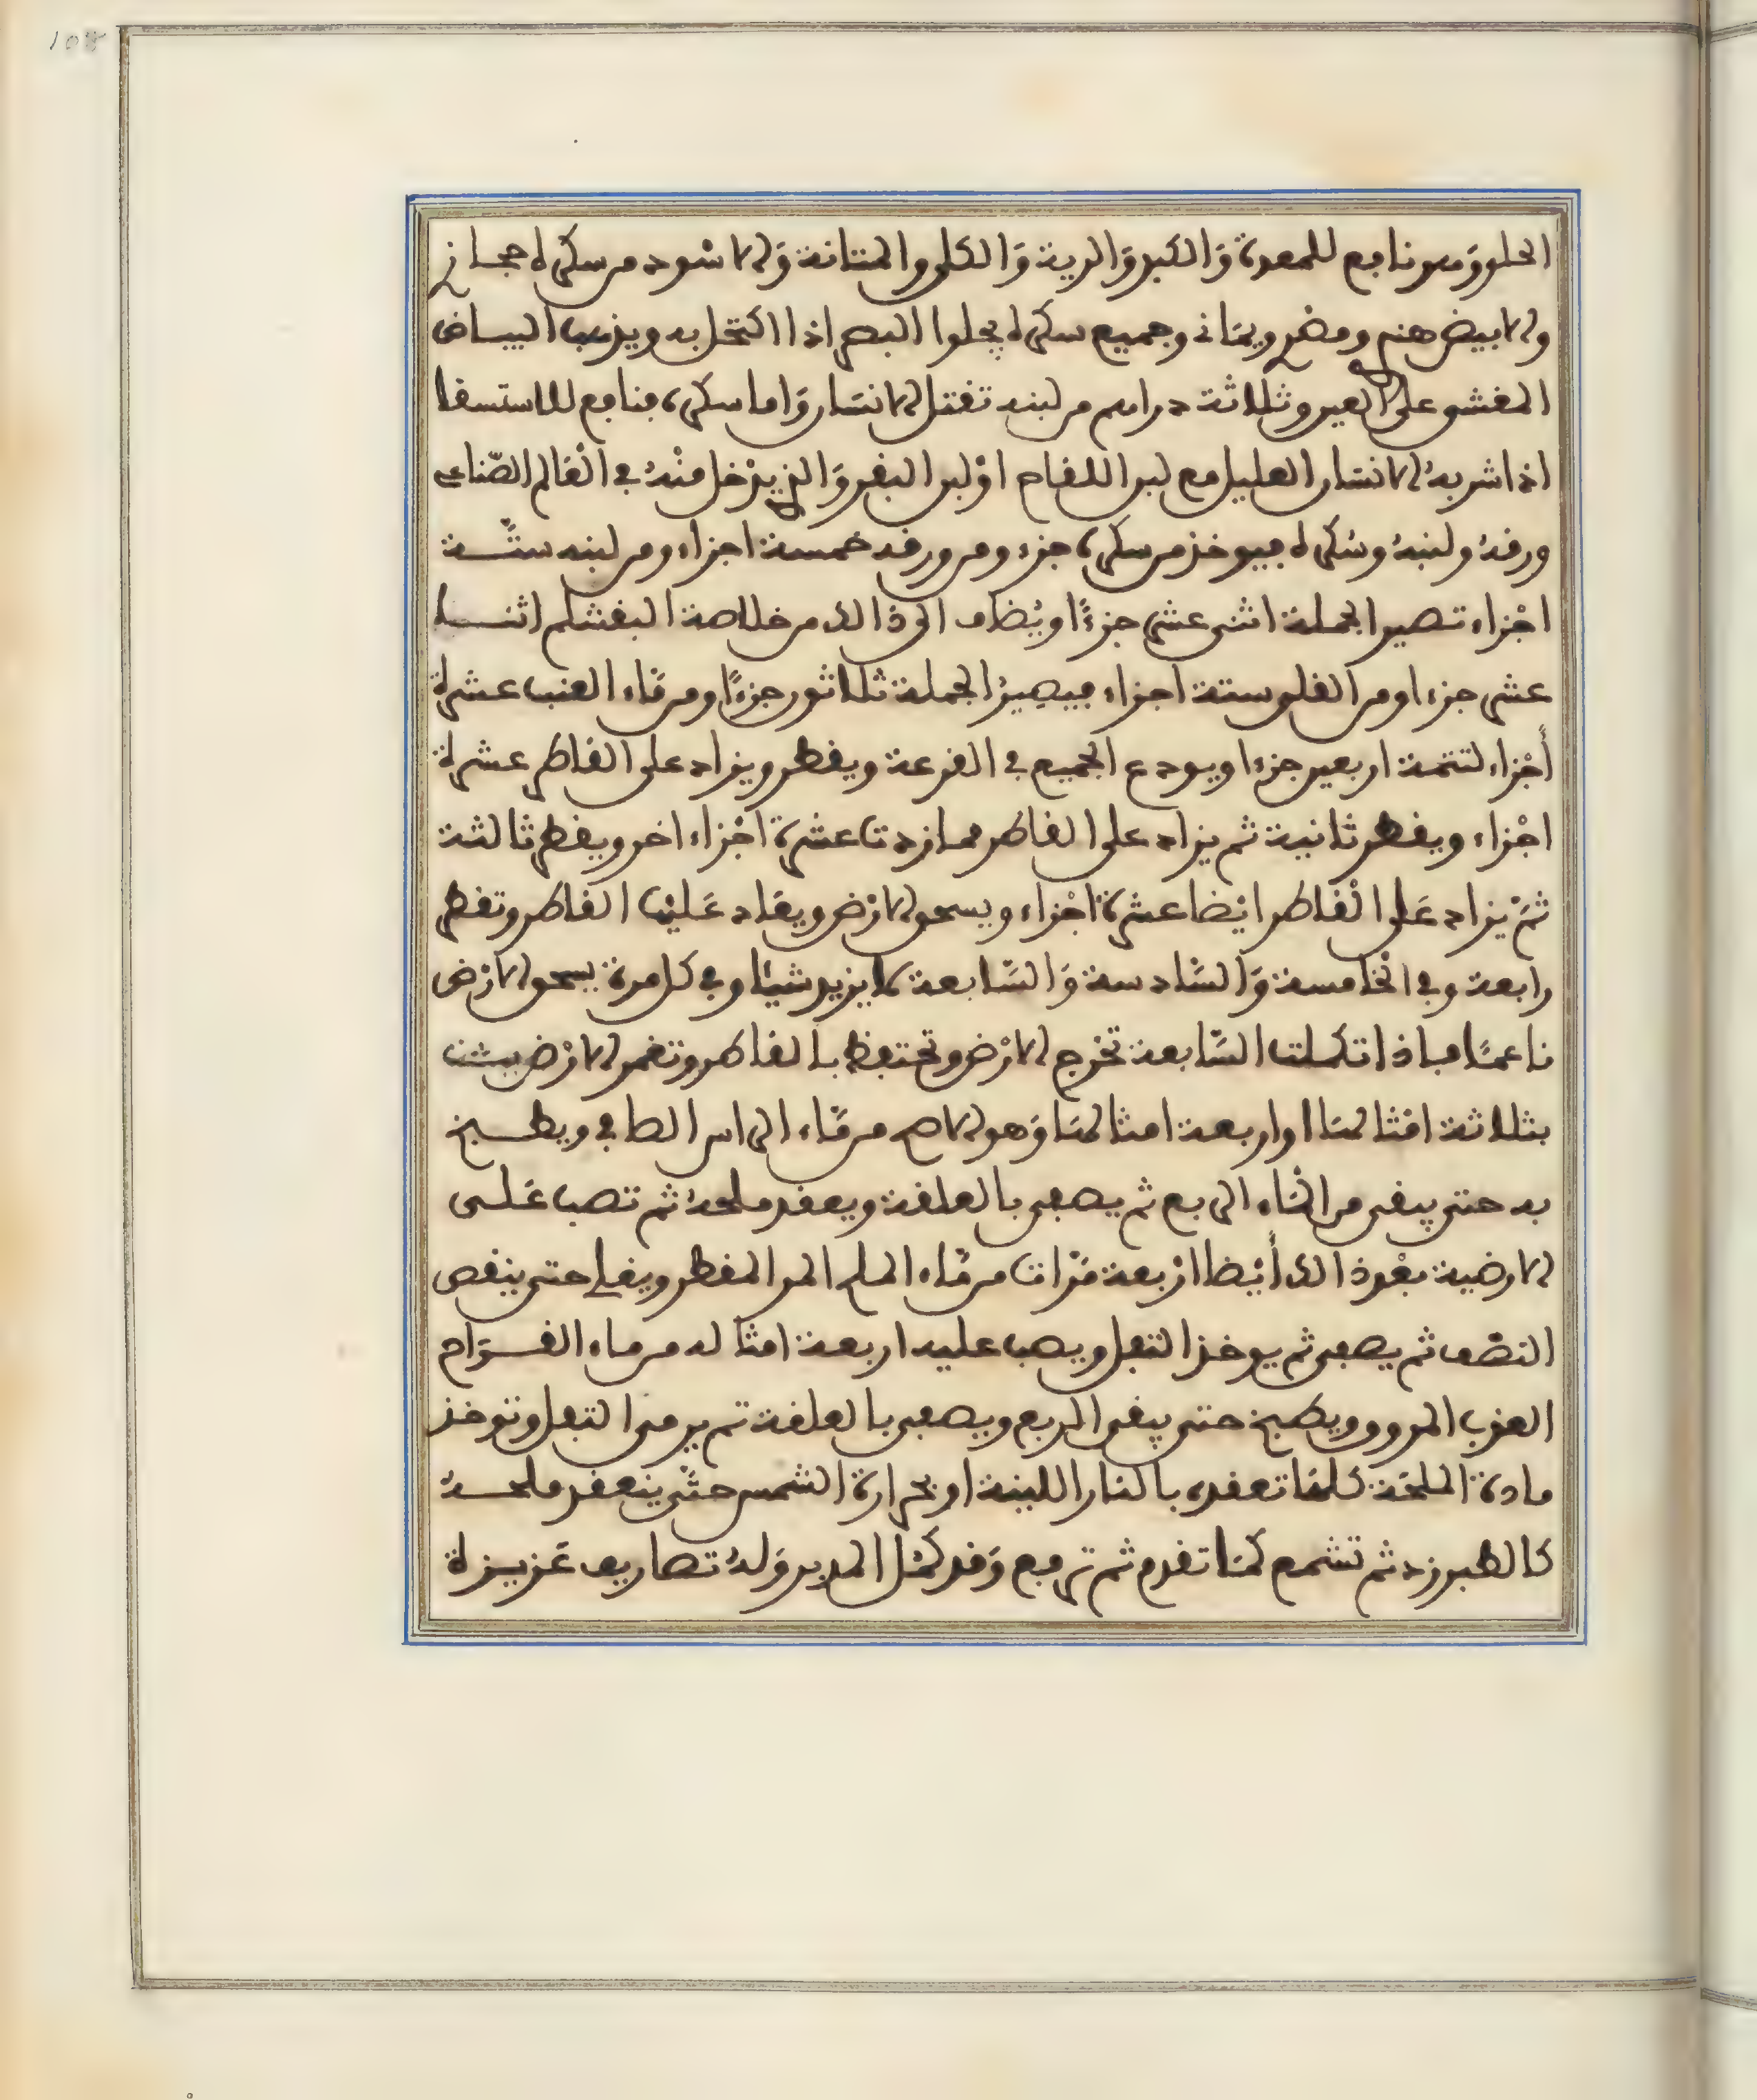 الحلق وهو نافع للمعدة وَالكبد وَالرية وَالكلى والمثانة وَالاسْود من سكره حجازي
والابيض هندي ومصري ويماني وجميع سكره يجلوا البصر اذا اكتحل به ويذهب البياض
المغشي على العين وثلاثة دراهم من لبنه تقتل الانسان وَاما سكره فنافع للاستسقا
اذا شربهُ الانسان العليل مع لبن اللقاح اوْ لبن البقر وَالذي يدْخل منْهُ في الْعَالم الصّناعي
ورقهُ ولبنهُ وسُكره فيوخذ من سكره جزء ومن ورقه خمسة اجزاء ومن لبنه ستَّة
اجْزاء تصير الجملة اثنى عشر جزءًا ويُضاف الى ذالك من خلاصة البقشلم اثنا
عشر جزءا ومن القلي ستة اجزاء فيصِيرُ الجملة ثلاثون جزءًا ومن مَاء العنب عشرة
أجْزاء لتتمة اربعين جزءا ويودع الجميع في القرعة ويقطر ويزاد على القاطر عشرة
اجْزاء ويقطر ثانية ثم يزاد على القاطر مما زدتا عشرة اجْزاء اخر ويقطر ثالثة
ثمّ يزاد عَلى الْقاطر ايْضا عشرة اجْزاء ويسحق الارْض ويعَاد عَليْهَا القاطر وتقطر
رابعة وفي الْخامسة وَالسَّادسة وَالسَّابعة لا يزيد شيْأ وفي كل مرة يسحق الارْض
ناعمًا فاذا تكملت السَّابعة تخرج الارْض وتحتفظ بالقاطر وتغمر الارْض
بثلاثة امْثالهَا او اربعة امثالهَا وَهو الاصح من مَّاء الراس الطافي ويطبخ
به حتى يبقى من المَاء الربع ثم يصفى بالعلقة ويعقد ملحهُ ثم تصب عَلى
الارضية بعْد ذالك أيْضا ارْبعة مَرّات من مَّاء الملح المر المقطر ويغلى حتى ينقص
النصْف ثم يصفى ثم يوخذ الثفل ويصب عليه اربعة امثاله من ماء القوَام
العذب المروق ويطبخ حتى يبقى الربع ويصفى بالعلقة ثم يرمى الثفل وتوخذ
مادة الملحَة كلهَا تعقده بالنار اللينة او بحرارة الشمس حتَّى ينعقد ملحهُ
كالطبرزد ثم تشمع كمَا تقدم ثم ترفع وَقد كمُل المدبر وَلهُ تصاريف عَزيزة